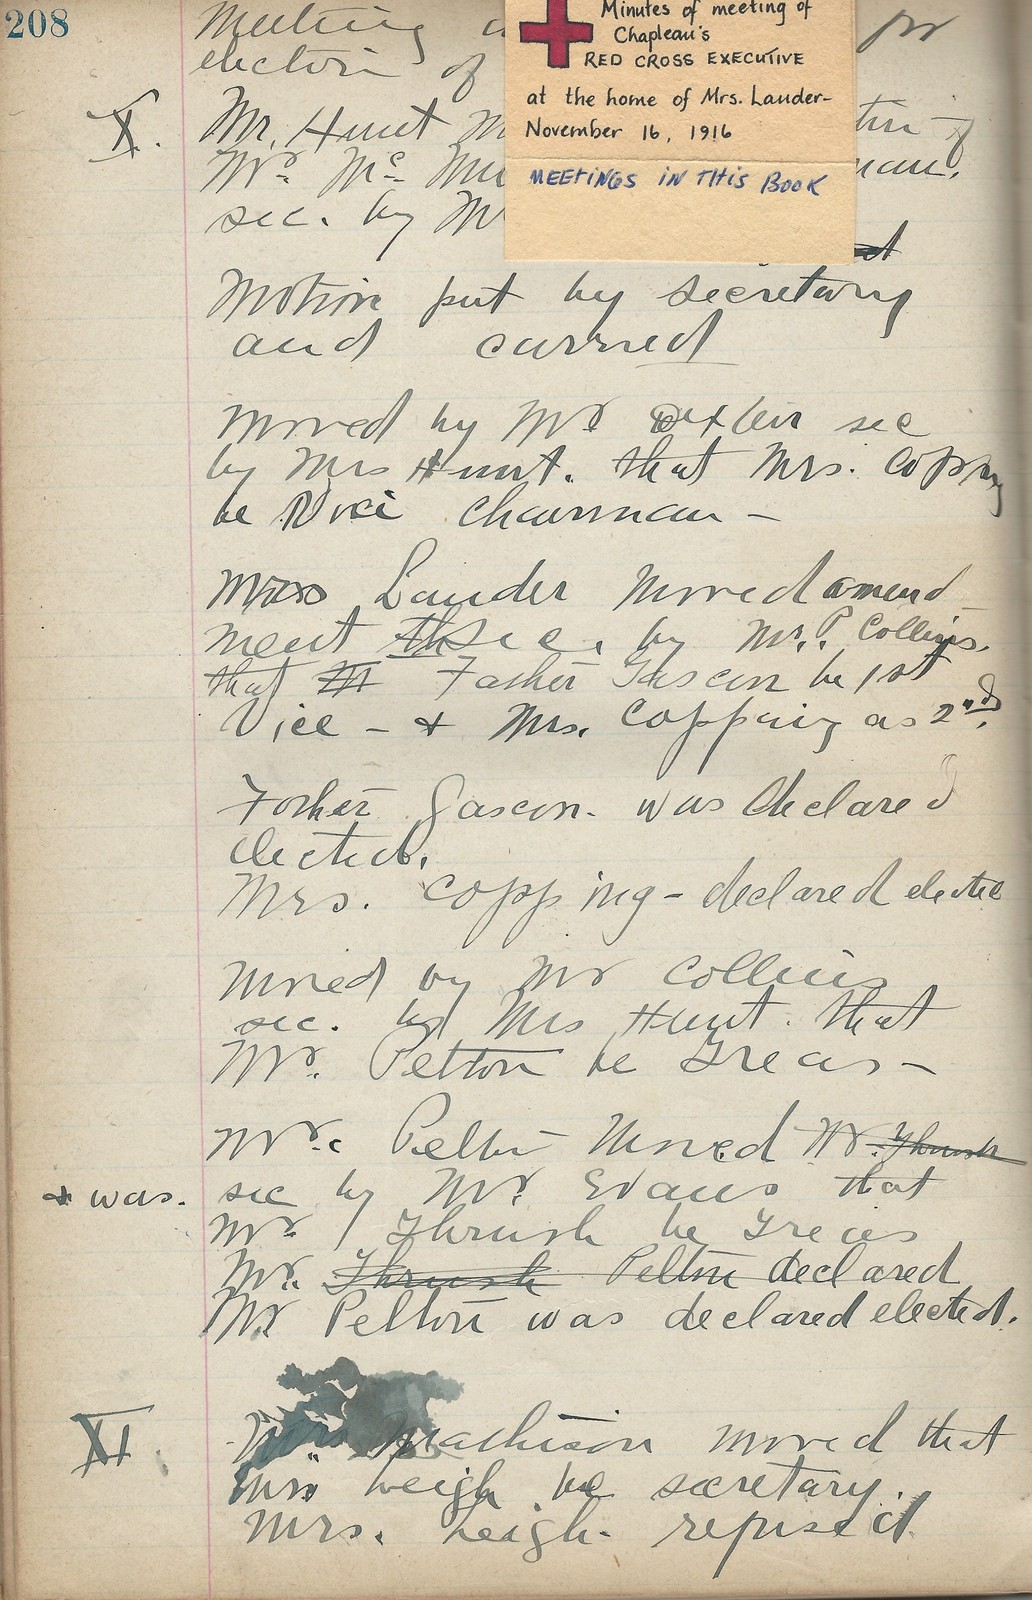 208
Meeting for
election of
Minutes of meeting of
Chapleau's
RED CROSS EXECUTIVE
at the home of Mrs. Lauder-
November 16, 1916
MEETINGS IN THIS BOOK
X. Mr. Hunt
Mr. Mc
sec. by
Motion put by secretary
and carried
Moved by Mr sec
by Mrs Hunt. that Mrs. Copping
be Vice Chairman -
Lauder moved amend-
ment sec. by Mr. P. Collins.
that Father Gascon be 1st
Vice - & Mrs. Copping as 2nd.
Father Gascon. was declared
elected.
Mrs. Copping - declared elected
Moved by Mr Collins
sec. by Mrs Hunt. that
Mr. Pelton be Treas -
Mr. Pelton Moved Mr. Thrush
& was. sec by Mr. Evans that
Mr Thrush be Treas
Mr. Thrush Pelton declared
Mr Pelton was declared elected.
XI. Mathison moved that
Mrs Leigh be secretary.
Mrs. Leigh. refused